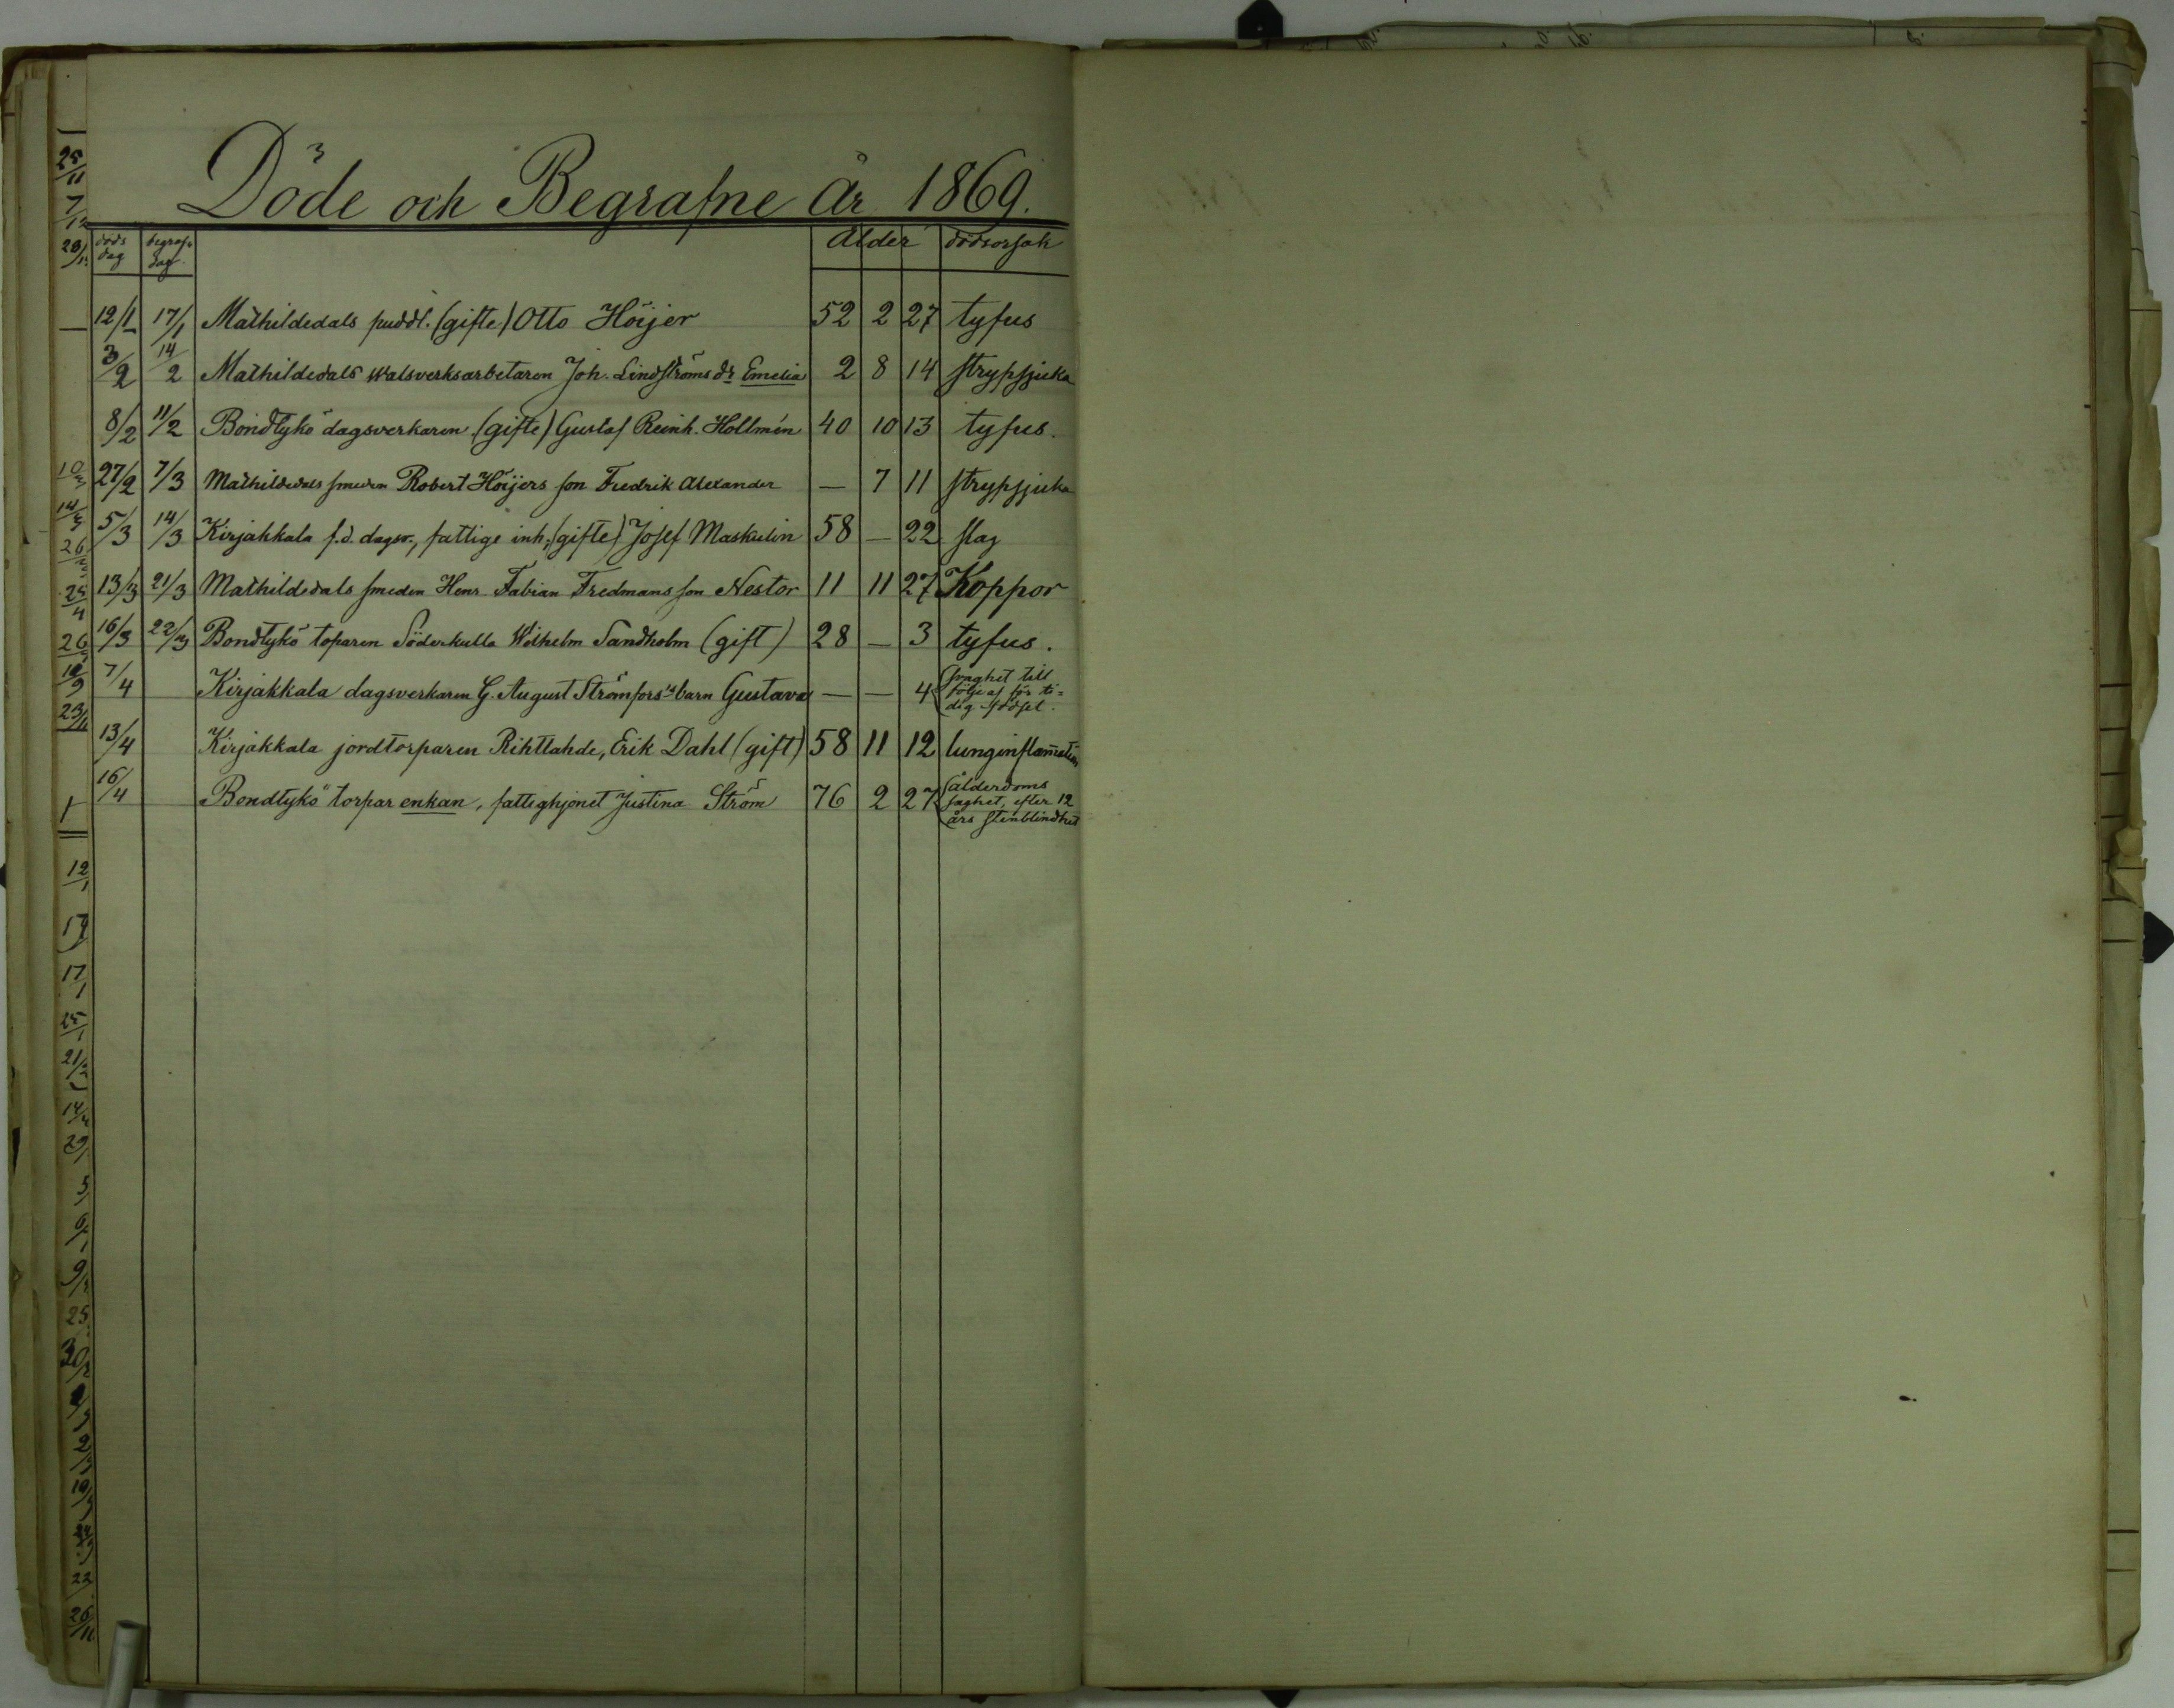 Döde och Begrafne År 1869.
döds dag begraf. dag Ålder dödsorsak
12/1 17/1 Mathildedals puddl. (gifte) Otto Höijer 52 2 27 tyfus
3/2 14/2 Mathildedals walsverksarbetaren Joh. Lindströms dr Emelia 2 8 14 strypsjuka
8/2 11/2 Bondtykö dagsverkaren (gifte) Gustaf Reinh. Hollmén 40 10 13 tyfus.
27/2 7/3 Mathildedals smeden Robert Höijers son Fredrik Alexander — 7 11 strypsjuka
5/3 14/3 Kirjakkala f.d. dagsv., fattige inh. (gifte) Josef Maskulin 58 — 22 slag
13/3 21/3 Mathildedals smeden Henr Fabian Fredmans son Nestor 11 11 27 Koppor
16/3 22/3 Bondtykö toparen Söderkulla Wilhelm Sandholm (gift) 28 — 3 tyfus.
7/4 Kirjakkala dagsverkaren G. August Strömfors's barn Gustava — — 4 Svaghet till
följe af för ti=
dig födsel.
13/4 Kirjakkala jordtorparen Rihtlahde, Erik Dahl (gift) 58 11 12 lunginflam̄ation
16/4 Bondtykö torpar enkan, fattighjonet Justina Ström 76 2 27 ålderdoms
svaghet, efter 12
års stenblindhet
25/11
7/12
10/3
14/3
26
25/4
26
23/11
12/1
17
17/1
25/1
21/2
14/2
29
3
6
9/2
25
22
26/11